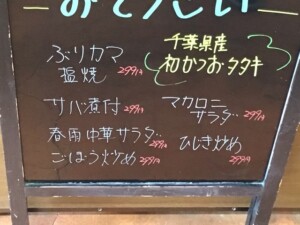 おそうざい
ぶりカマ
塩焼 299円
千葉県産
初かつおタタキ
サバ煮付 299円
マカロニ
サラダ 299円
春雨中華サラダ 299円
ひじき炒め
299円
ごぼう炒め 299円